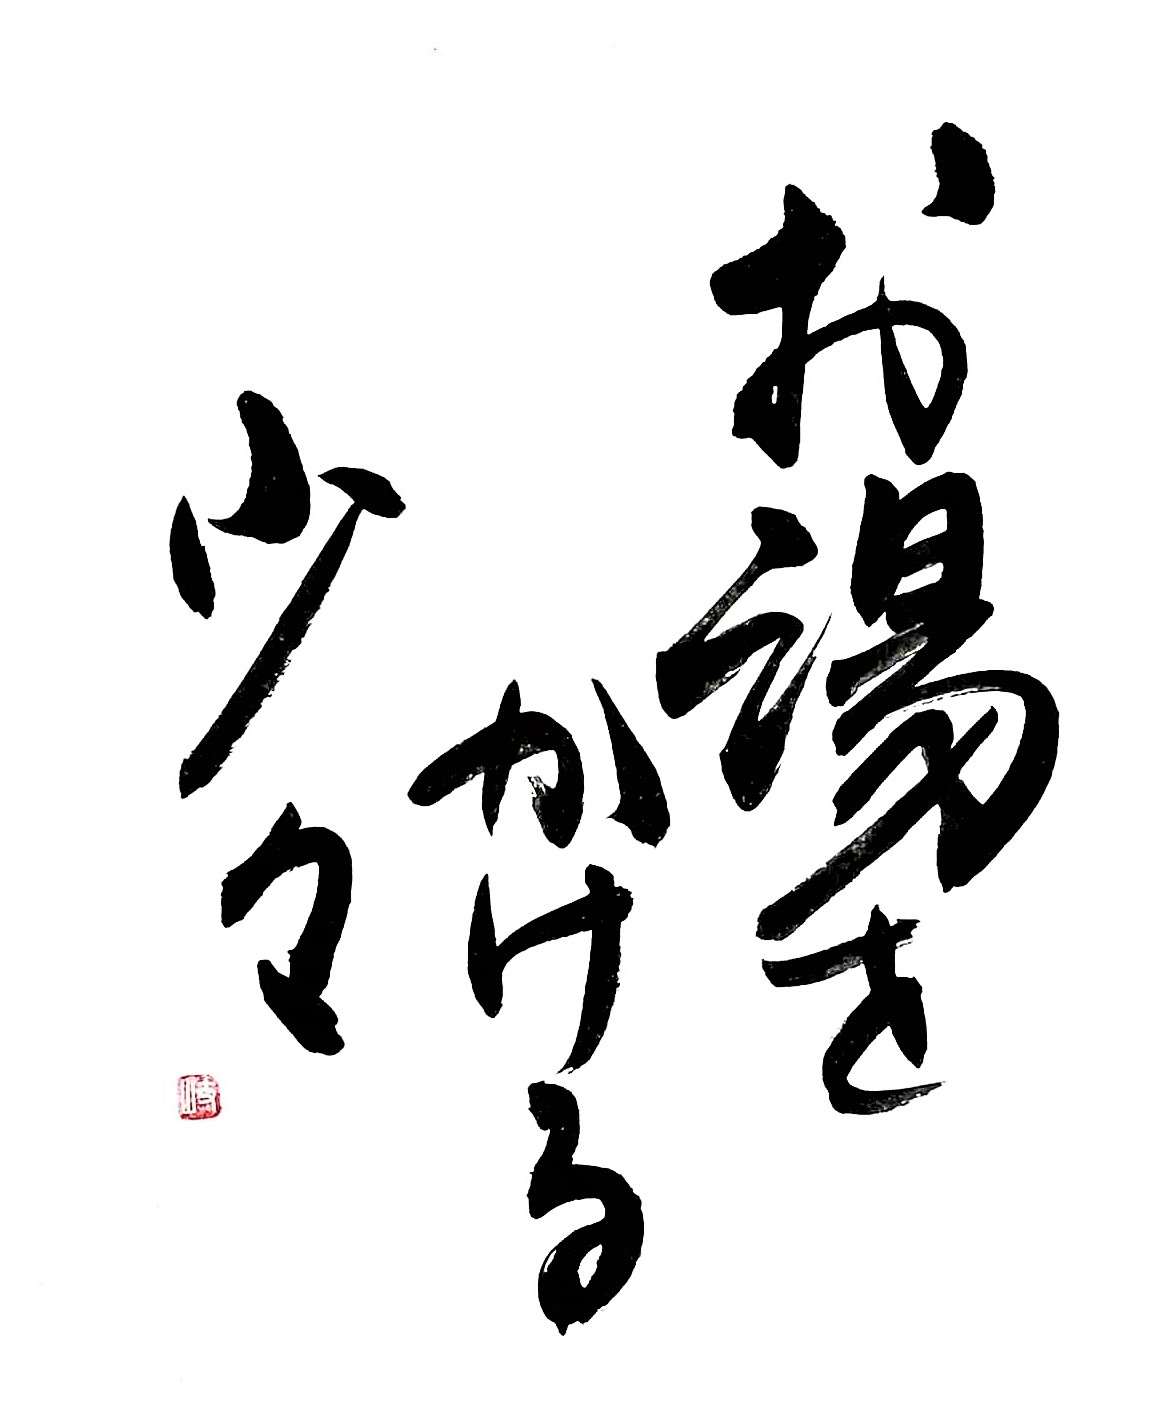 お湯を
かける
少々